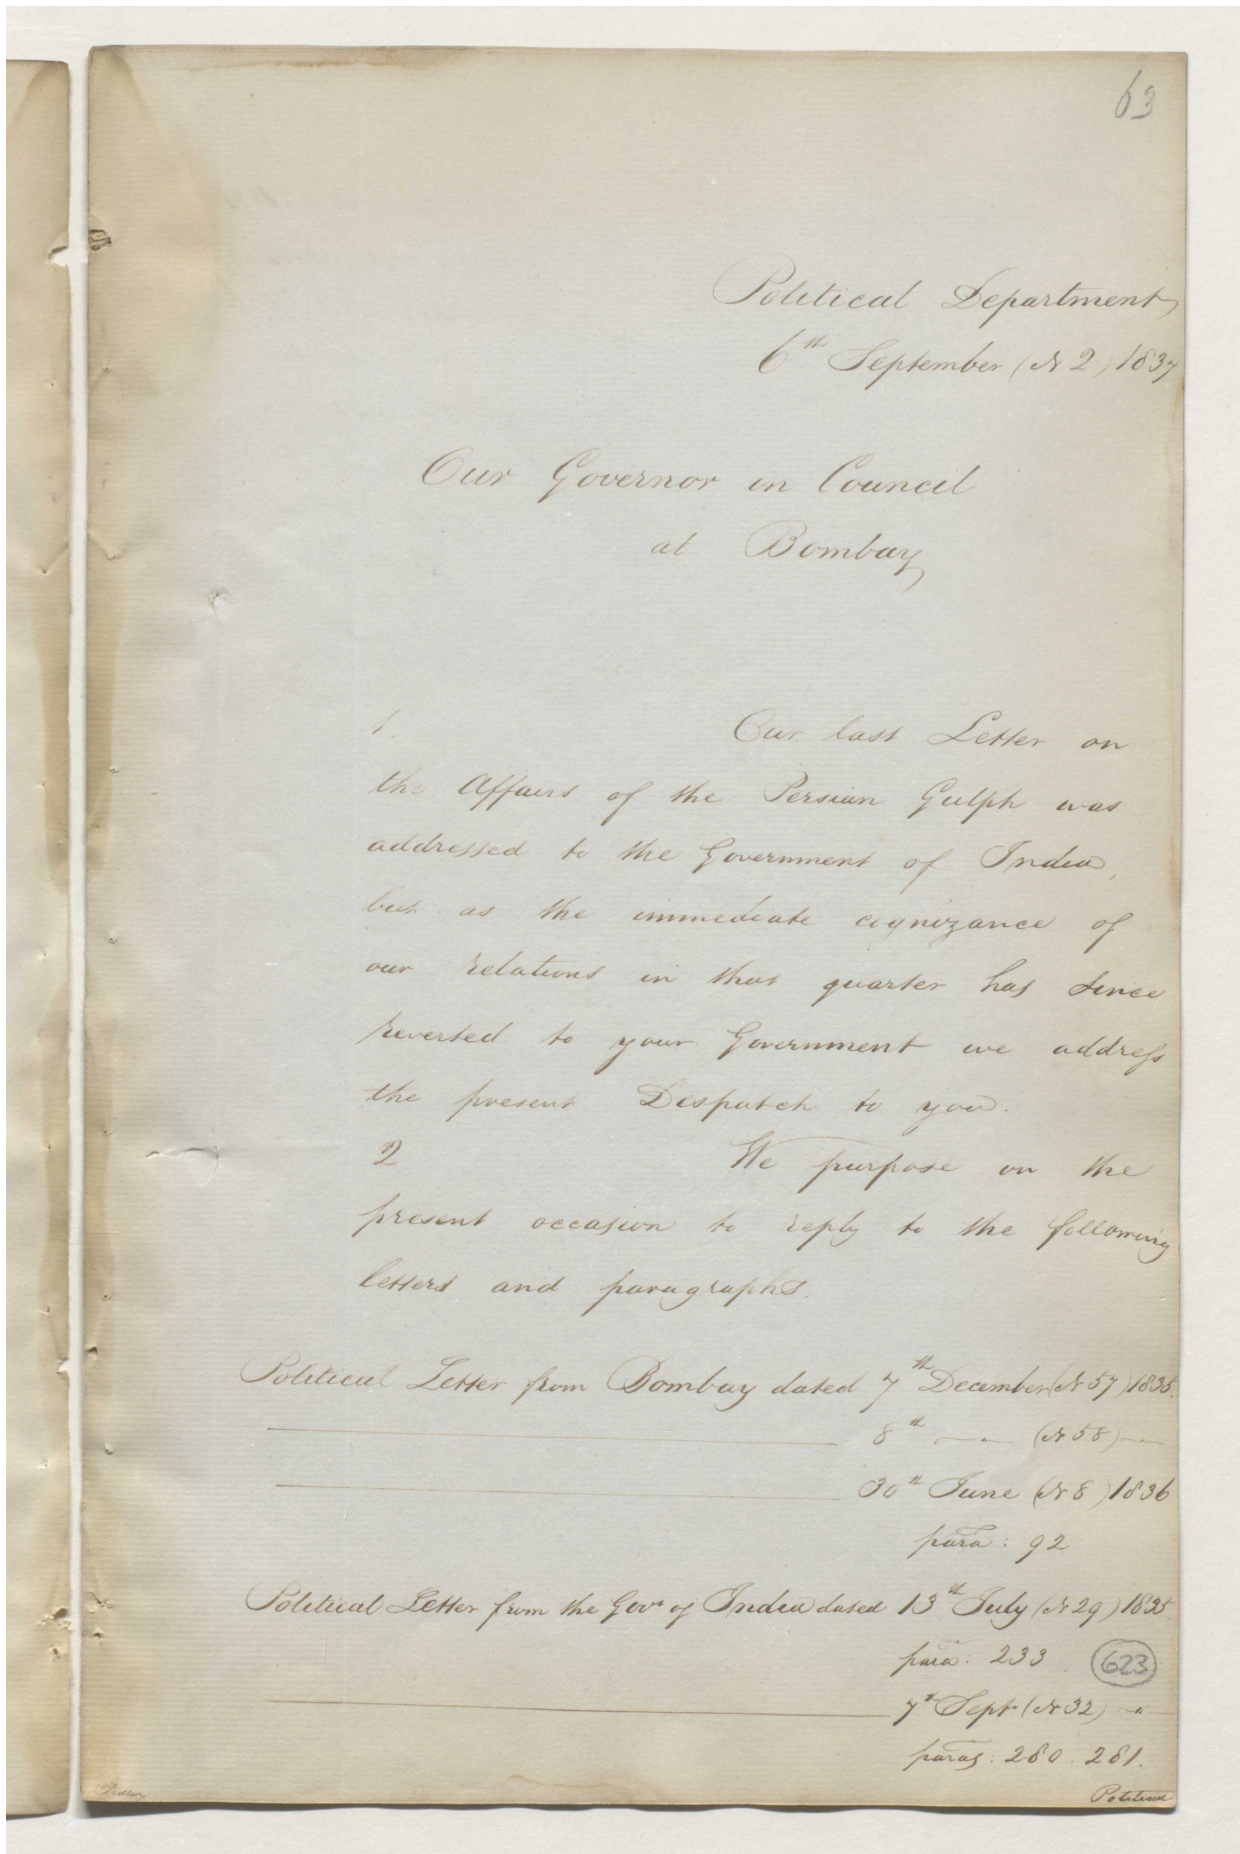 63
Political Department
6th September (No 2) 1837
Our Governor in Council
at Bombay
1. Our last Letter on
the Affairs of the Persian Gulph was
addressed to the Government of India,
but as the immediate cognizance of
our relations in that quarter has since
reverted to your Government we address
the present Despatch to you.
2 We purpose on the
present occasion to reply to the following
letters and paragraphs.
Political Letter from Bombay dated 7th December (No 57) 1835.
8th — " — (No 58) —
30th June (No 8) 1836
para: 92
Political Letter from the Govt of India dated 13th July (No 29) 1835
para: 233
623
7th Sept (No 32) "
paras: 280. 281.
Political